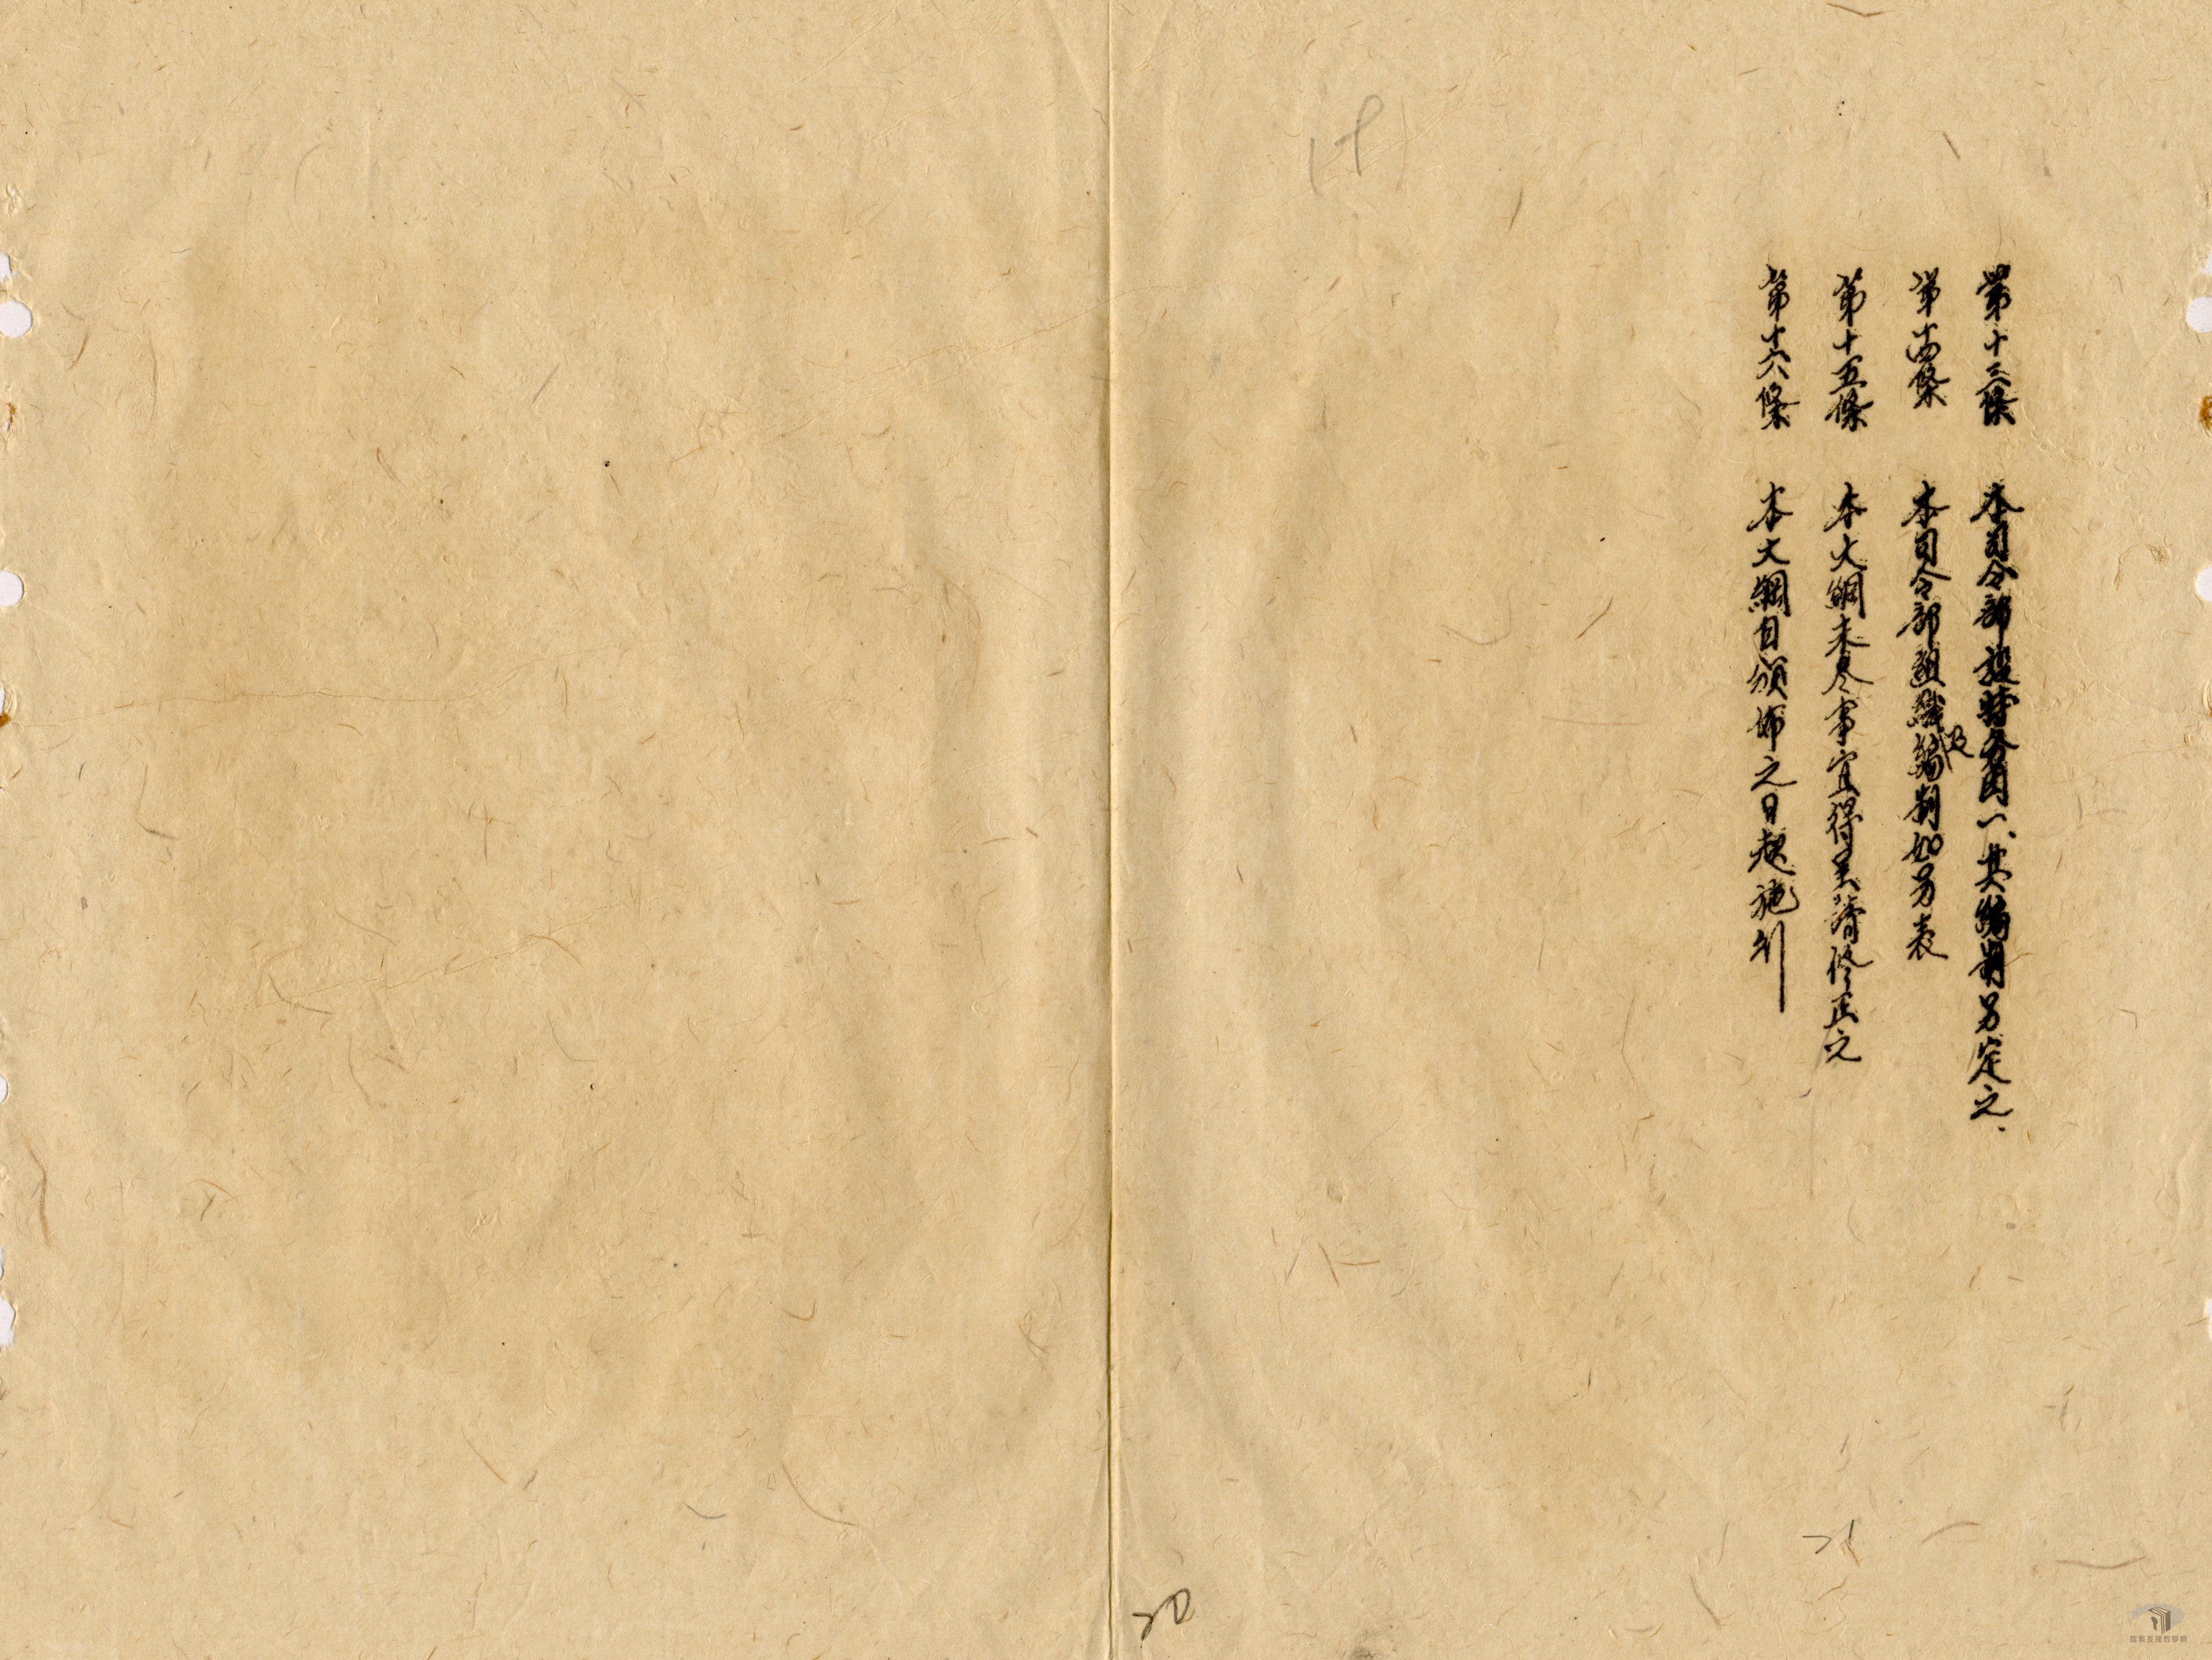 第十三條　本司令部設特務團一、其編制另定之.
第十四條　本司令部組織及編制如另表
第十五條　本大綱未尽事宜得呈請修正之
第十六條　本大綱自頒佈之日起施行
19
21
20
國家支援教學網